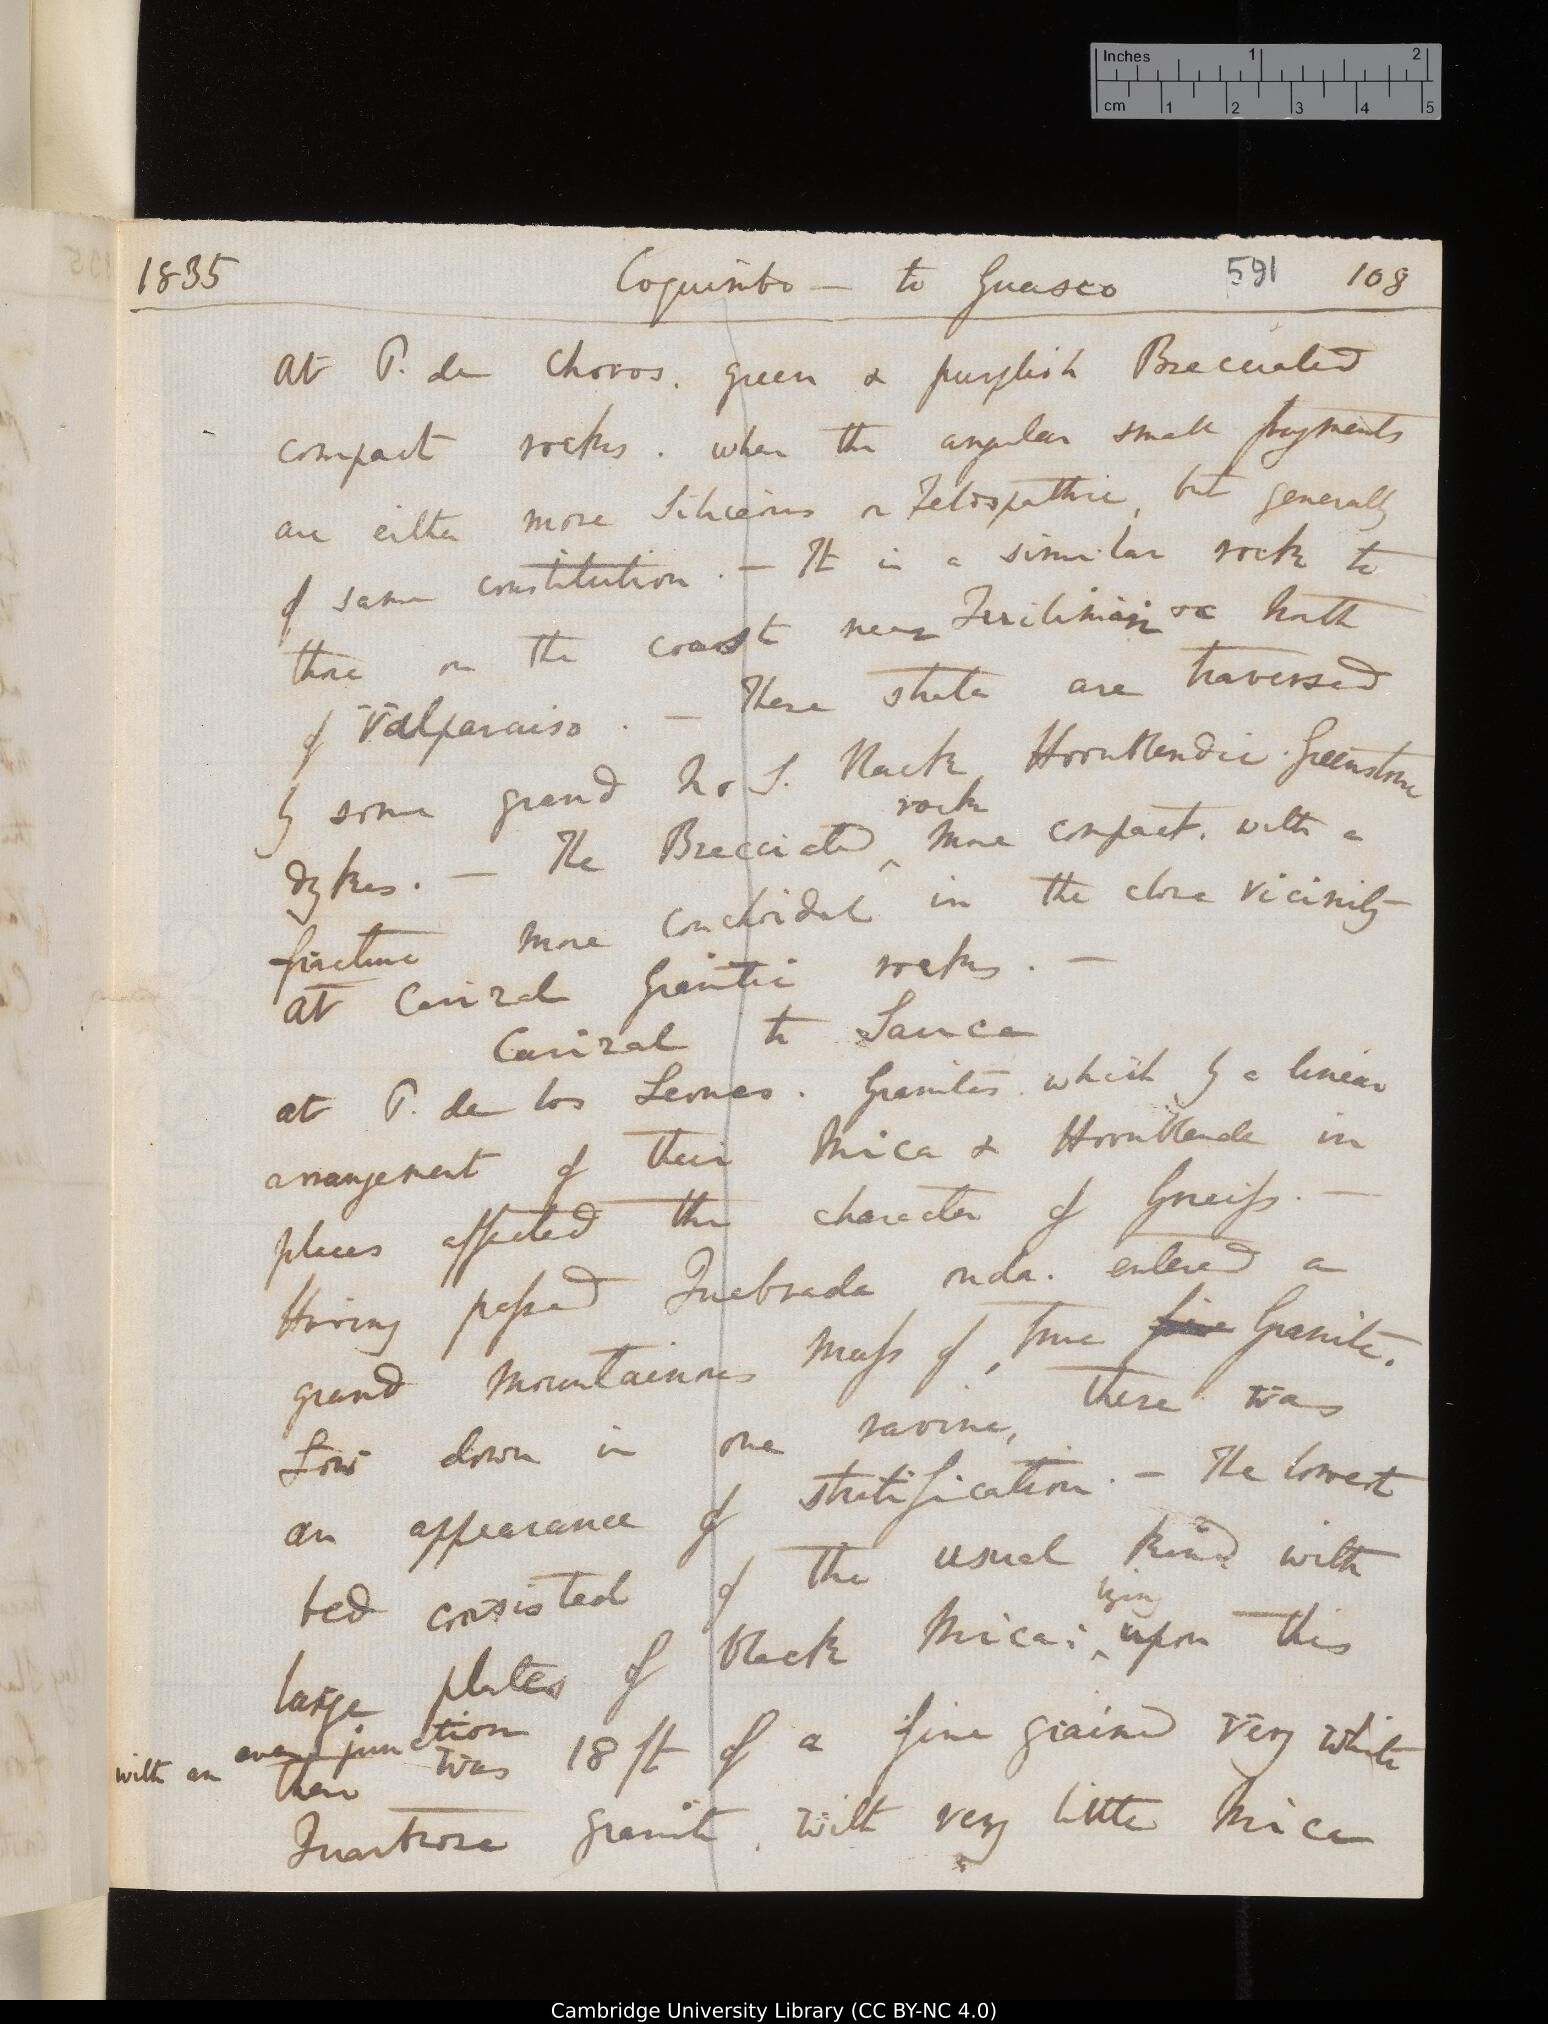 Inches 1 2
cm 1 2 3 4 5
1835 Coquimbo — to Guasco 591 108
at P. de Choros. green & purplish Brecciated
compact rocks. when the angular small fragments
are either more Siliceous or Felspathic, but generally
of same constitution. — It is a similar rock to
those on the coast near Quilimari &c North
of Valparaiso. — These strata are traversed
by some grand N or S. Black Hornblendic. Greenstone
dykes. — The Brecciated ^ rock more compact. with a
fracture more conchoidal in the close vicinity
at Carizal Granitic rocks. —
Carizal to Sauce
at P. de los Leones. Granites. which by a linear
arrangement of their Mica & Hornblende in
places affected the character of Gneiss. —
Having passed Quebrada onda. entered a
grand mountainous mass of, true fine Granite.
Low down in one ravine, there was
an appearance of stratification. — The lowest
bed consisted of the usual kind with
large plates of black Mica: ^ lying upon this
with an even junction
there was 18 ft of a fine grained very white
Quartzose granite, with very little Mica
Cambridge University Library (CC BY-NC 4.0)